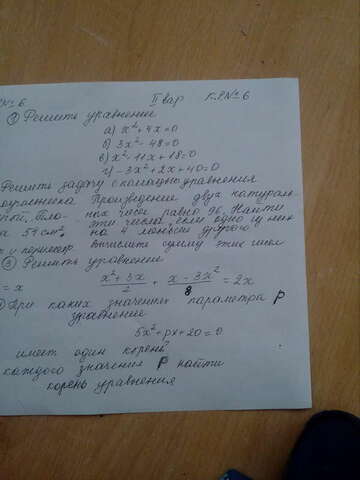 №6 II вар К.Р№6
① Решить уравнение
а) x²+4x=0
б) 3x²-48=0
в) x²-11x+18=0
г) -3x²+2x+40=0
Решить задачу с помощью уравнения
Произведение двух натураль-
ных чисел равно 96. Найти
эти числа, если одно из них
а 54 см², на 4 меньше другого.
вычислите сумму этих чисел
③ Решить уравнение
= x (x²+3x)/2 + (x-3x²)/8 = 2x
При каких значениях параметра p
уравнение
5x²+px+20=0
имеет один корень?
каждого значения p найти
корень уравнения